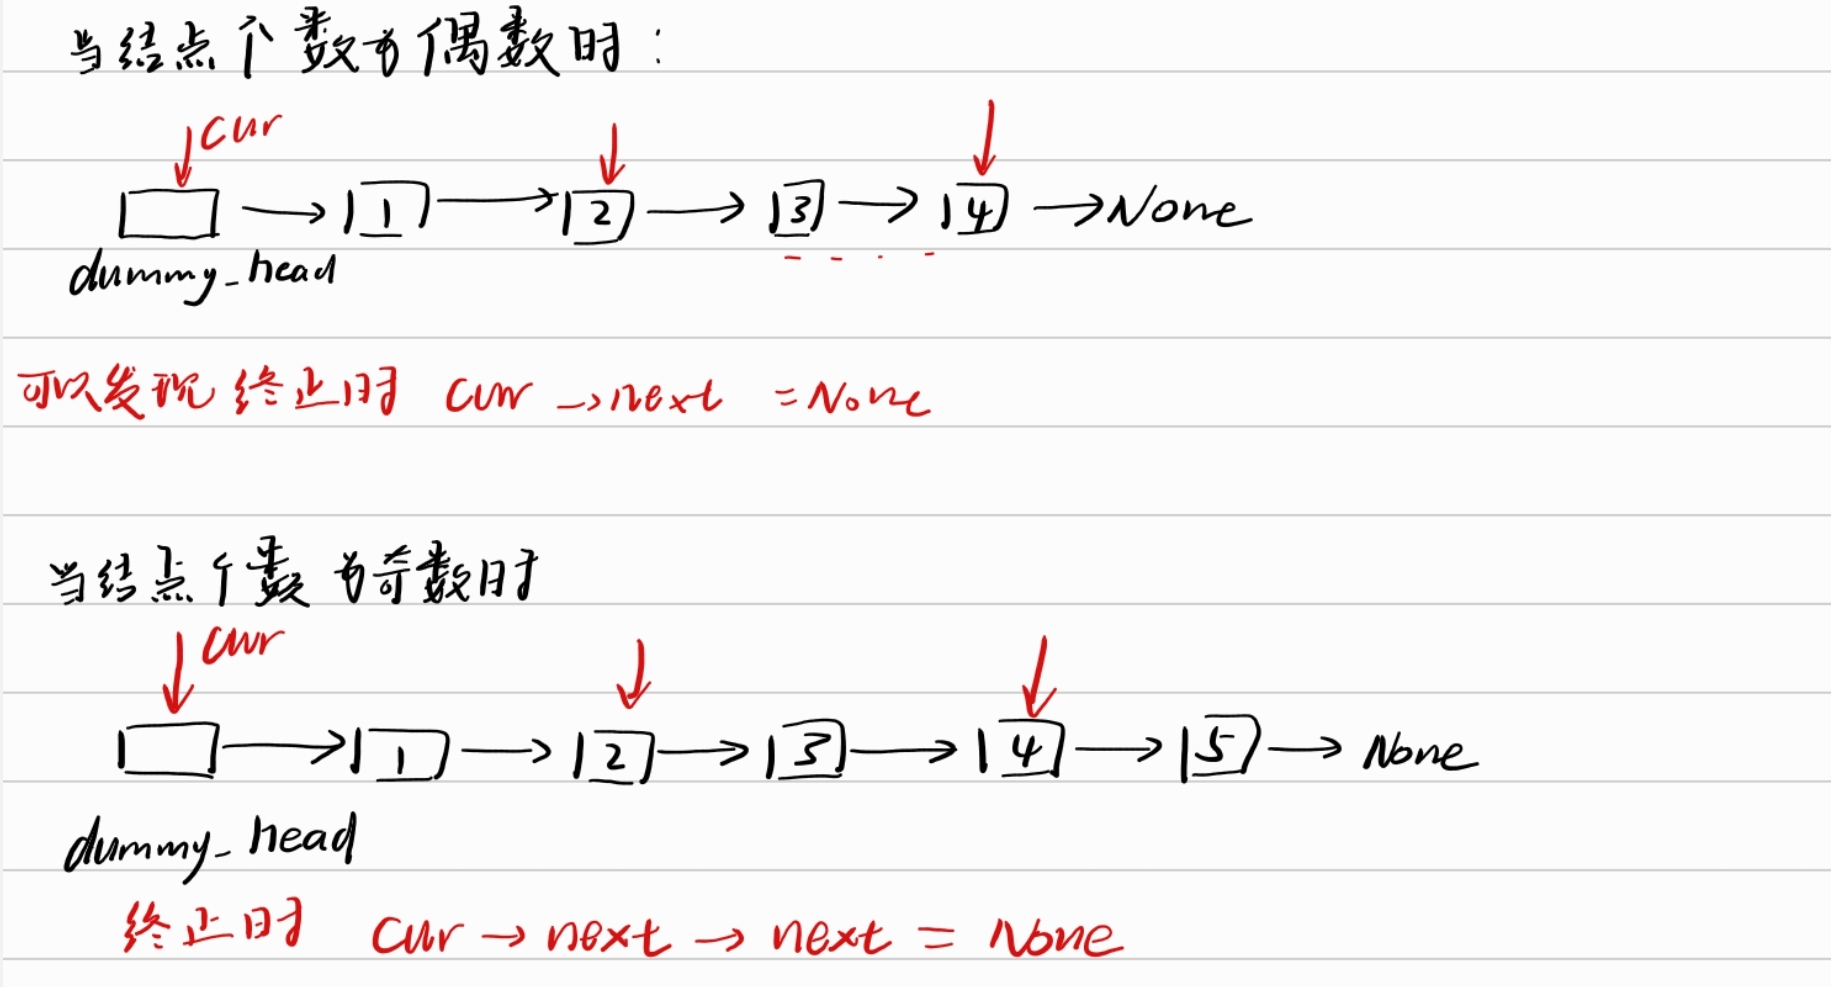 当结点个数为偶数时：
cur
1 2 3 4 None
dummy_head
可以发现终止时 cur →next =None
当结点个数为奇数时
cur
1 2 3 4 5 None
dummy_head
终止时 cur → next → next = None